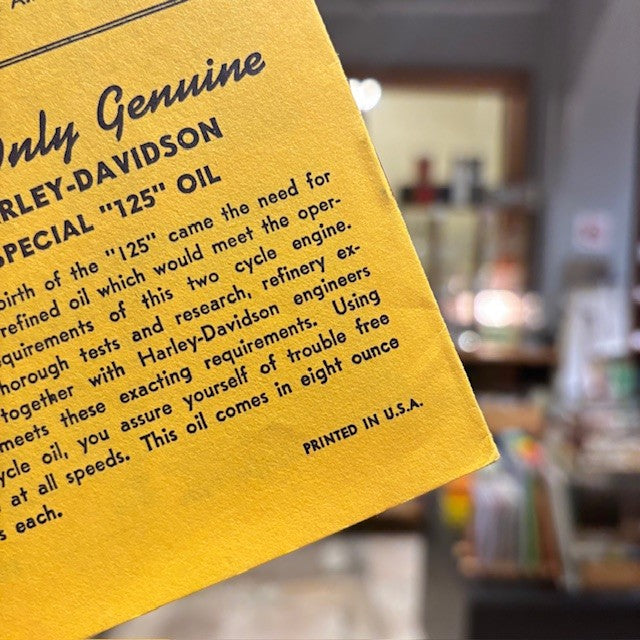 Only Genuine
HARLEY-DAVIDSON
SPECIAL "125" OIL
birth of the "125" came the need for
refined oil which would meet the oper-
quirements of this two cycle engine.
horough tests and research, refinery ex-
together with Harley-Davidson engineers
meets these exacting requirements. Using
ycle oil, you assure yourself of trouble free
at all speeds. This oil comes in eight ounce
s each.
PRINTED IN U.S.A.